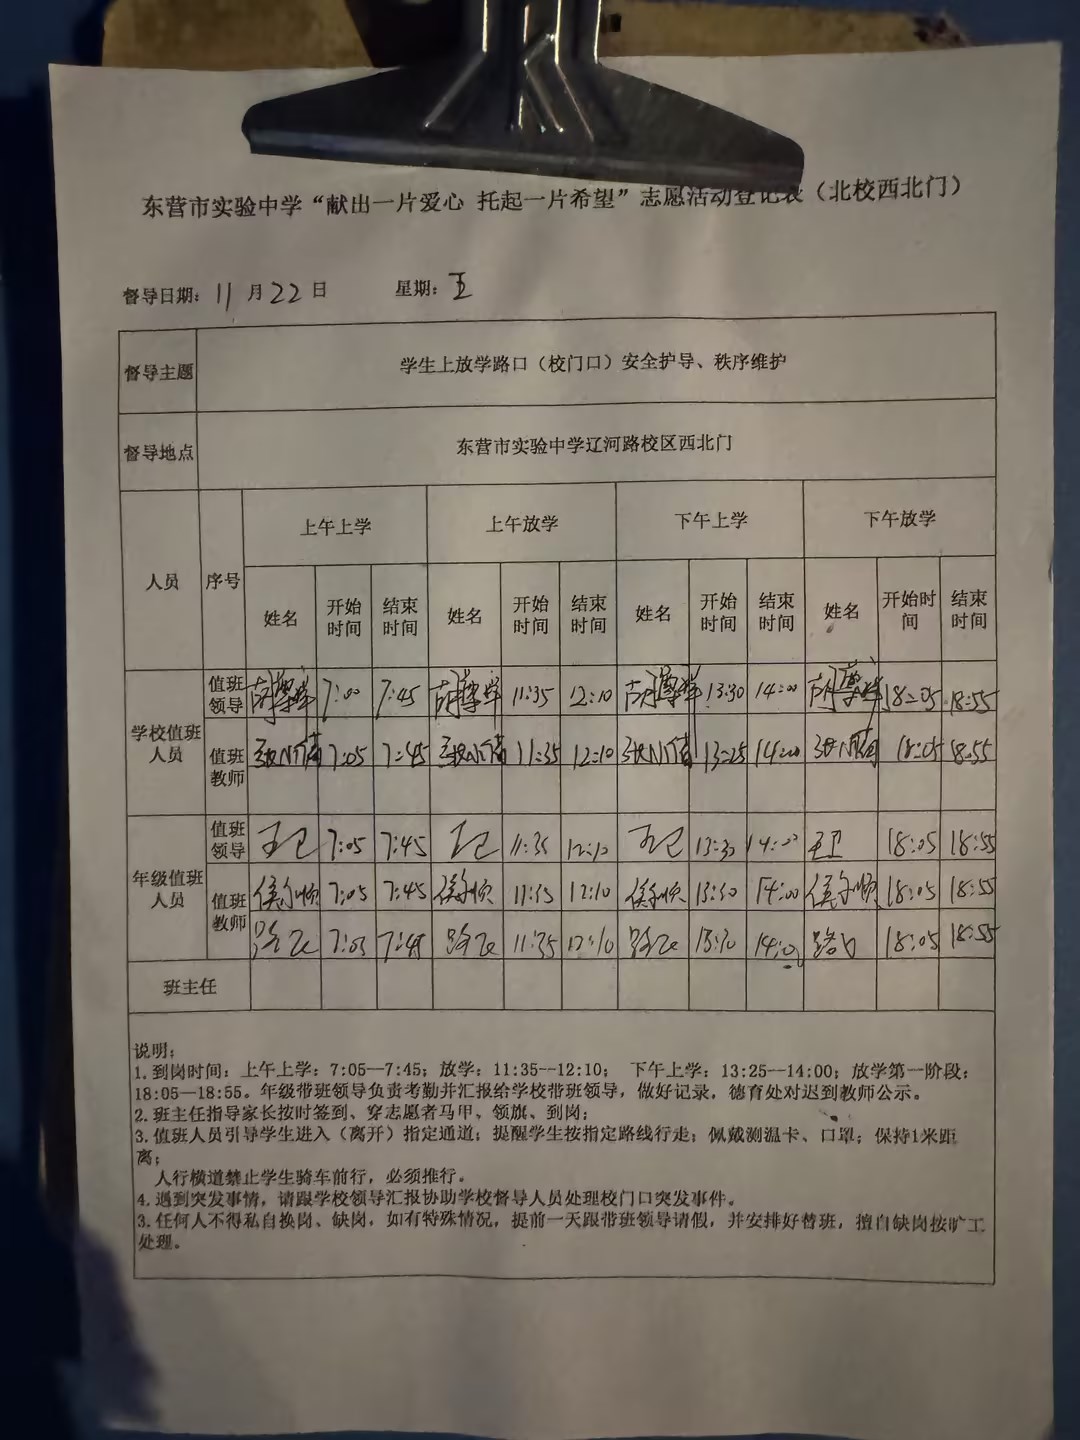 东营市实验中学“献出一片爱心 托起一片希望”志愿活动登记表（北校西北门）
督导日期： 11 月 22 日 星期： 五
督导主题 学生上放学路口（校门口）安全护导、秩序维护
督导地点 东营市实验中学辽河路校区西北门
人员 序号 上午上学 上午放学 下午上学 下午放学
姓名 开始时间 结束时间 姓名 开始时间 结束时间 姓名 开始时间 结束时间 姓名 开始时间 结束时间
学校值班人员 值班领导 7:00 7:45 11:35 12:10 13:30 14:00 18:05 18:55
值班教师 7:05 7:45 11:35 12:10 13:25 14:00 18:05 18:55
年级值班人员 值班领导 王卫 7:05 7:45 王卫 11:35 12:10 王卫 13:30 14:00 王卫 18:05 18:55
值班教师 7:05 7:45 11:35 12:10 13:30 14:00 18:05 18:55
7:05 7:45 11:35 12:10 13:30 14:00 18:05 18:55
班主任
说明；
1.到岗时间：上午上学：7:05—7:45；放学：11:35--12:10； 下午上学：13:25--14:00；放学第一阶段：
18:05—18:55。年级带班领导负责考勤并汇报给学校带班领导，做好记录，德育处对迟到教师公示。
2.班主任指导家长按时签到、穿志愿者马甲、领旗、到岗；
3.值班人员引导学生进入（离开）指定通道；提醒学生按指定路线行走；佩戴测温卡、口罩；保持1米距
离；
人行横道禁止学生骑车前行，必须推行。
4.遇到突发事情，请跟学校领导汇报协助学校督导人员处理校门口突发事件。
3.任何人不得私自换岗、缺岗，如有特殊情况，提前一天跟带班领导请假，并安排好替班，擅自缺岗按旷工
处理。